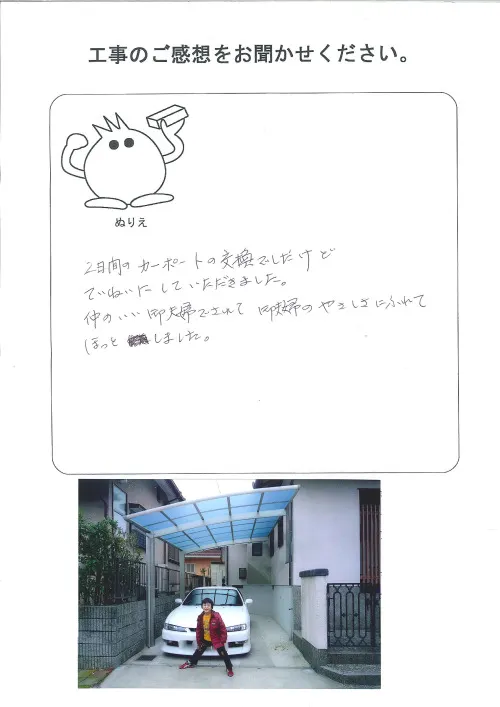 工事のご感想をお聞かせください。
ぬりえ
2日間の カーポートの交換でしたけど
ていねいに していただきました。
仲のいい 御夫婦でされて 御夫婦の やさしさにふれて
ほっと しました。